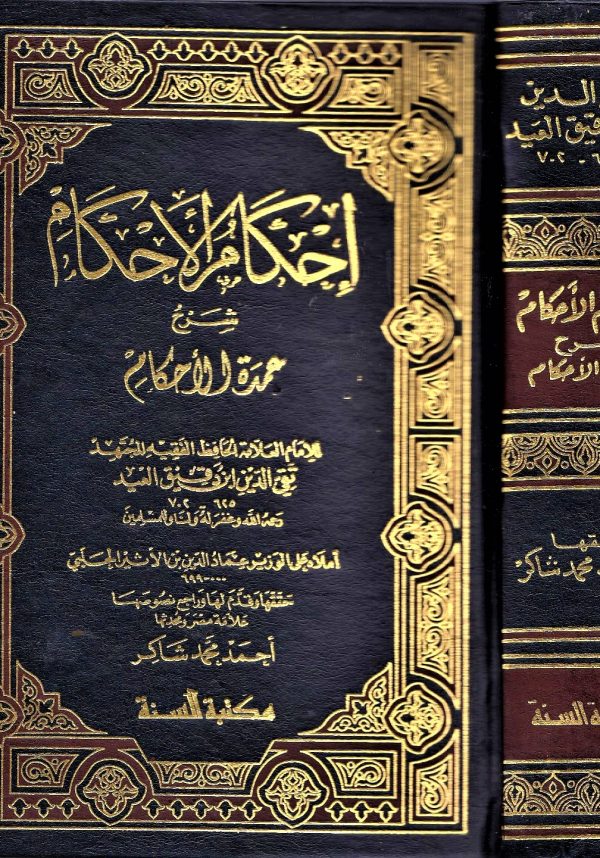 إِحْكَامُ الأَحْكَامِ
شَرْحُ
عمدة الأحكام
للإمام العلامة الحافظ الفقيه المجتهد
تقي الدين ابن دقيق العيد
٦٢٥ ٧٠٢
رحمه الله وغفر له ولنا وللمسلمين
أملاه على الوزير عماد الدين بن الأثير الحلبي
٠٠٠-٦٩٩
حققها وقدم لها وراجع نصوصها
علامة مصر ومحدثها
أحمد محمد شاكر
مكتبة السنة
الدين
دقيق العيد
٧٠٢ -
الأحكام
شرح
الأحكام
محمد شاكر
السنة